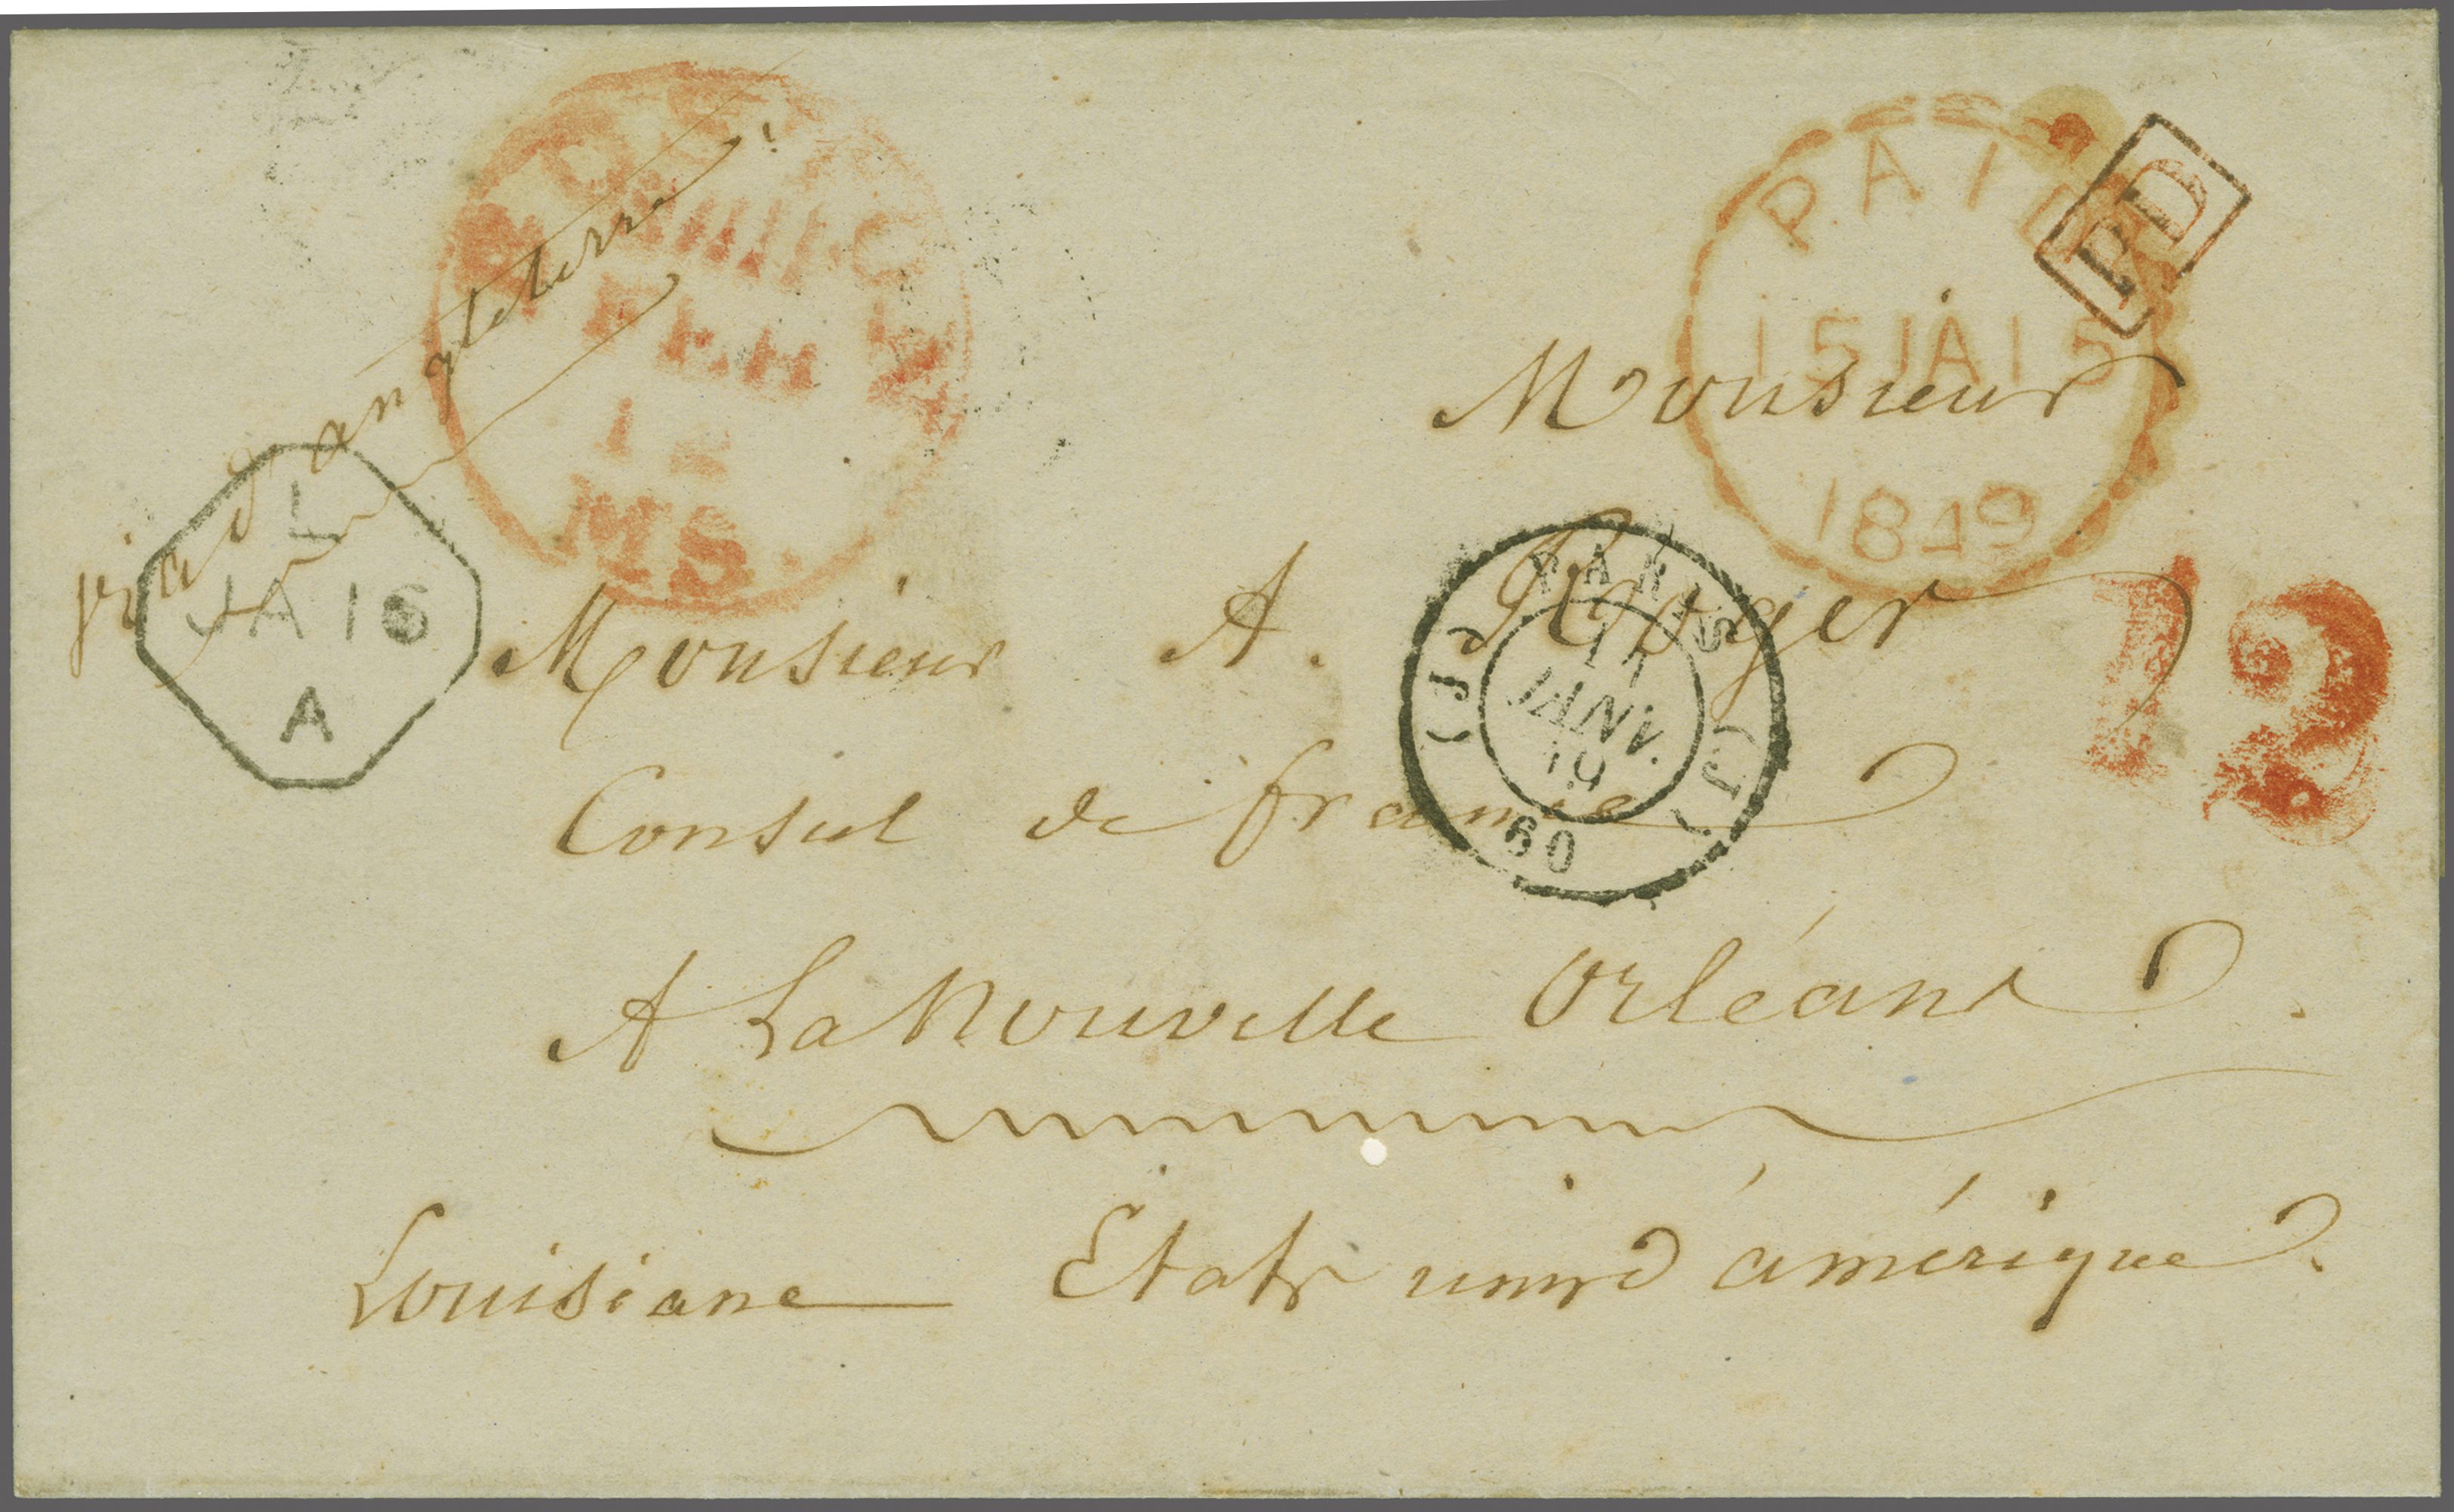 via d'angleterre
BOSTON
FEB 2
12
MS.
PAID
15 JA 15
1849
PD
Monsieur
L
JA 16
A
Monsieur A. Roger
PARIS
(J) (J)
JANV.
49
60
12
Consul de france
A La Nouvelle Orléans
Louisiane Etats unis d'amérique.